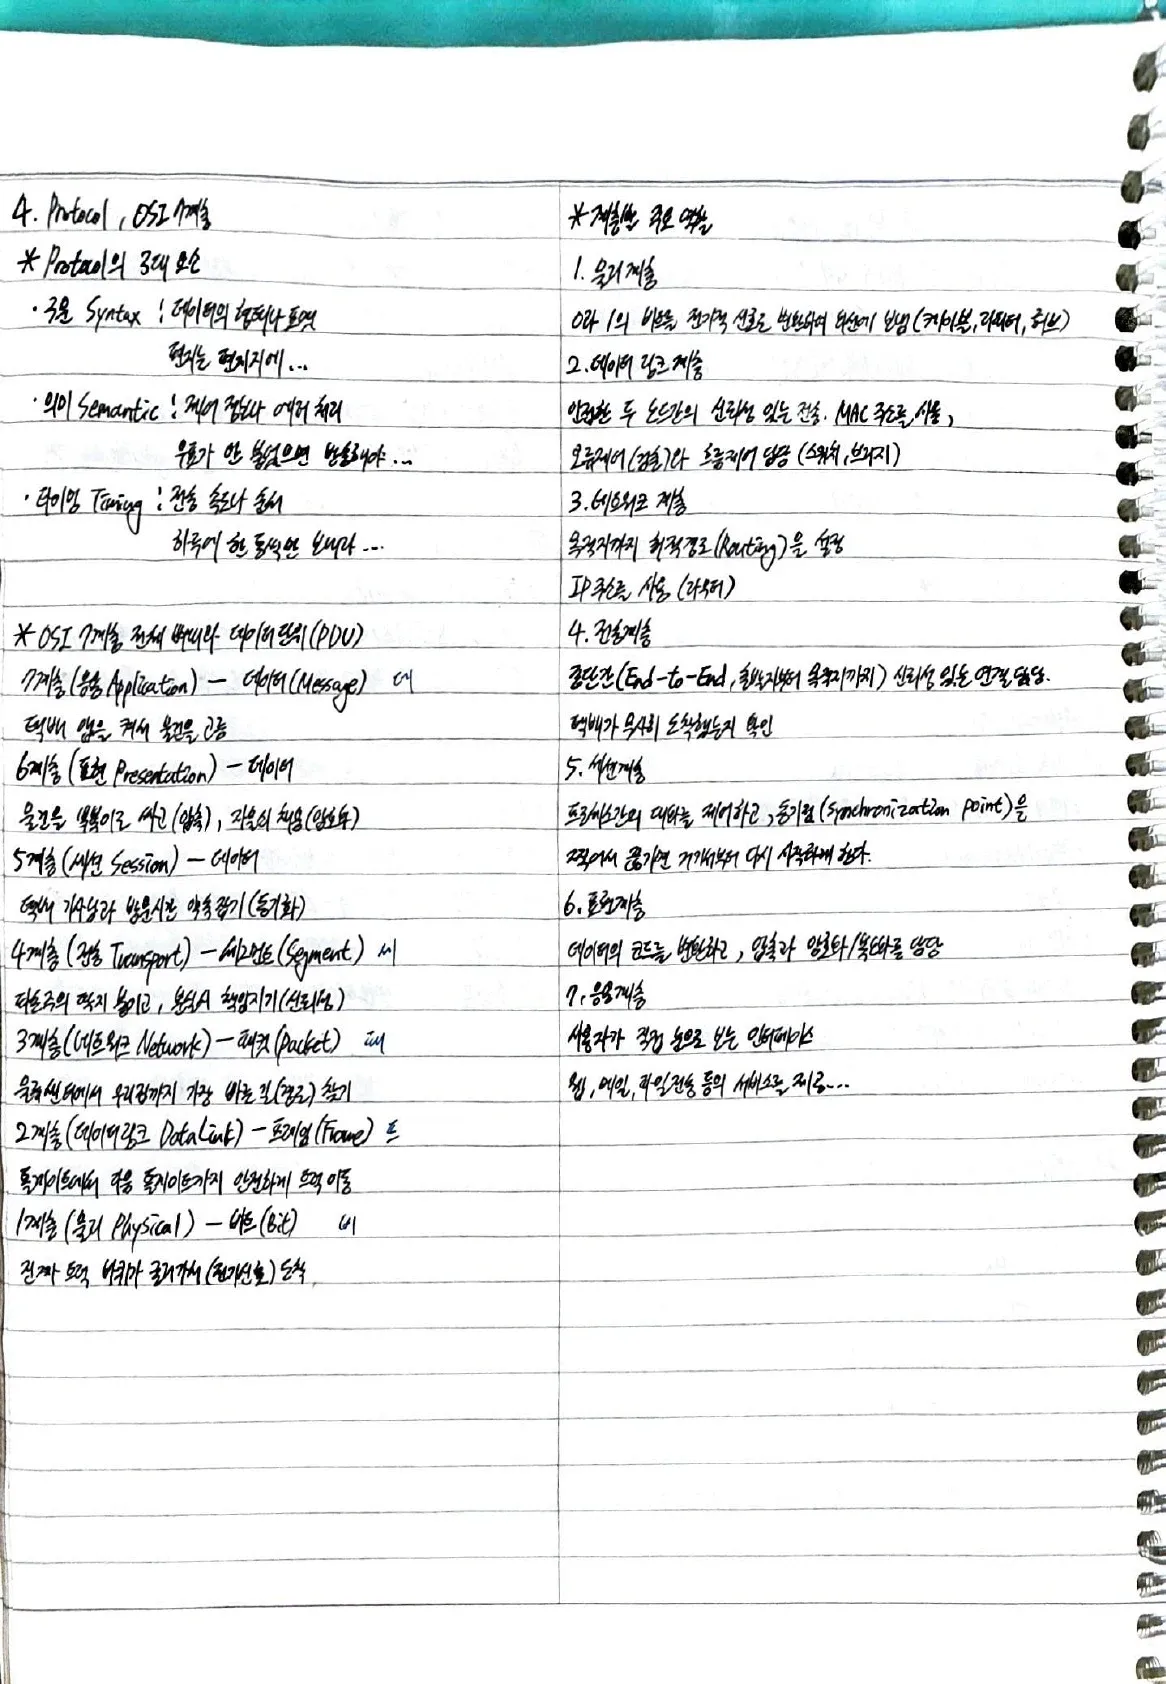 4. Protocol, OSI 7계층
* Protocol의 3대 요소
· 구문 Syntax : 데이터의 형태나 표현
편지는 편지지에...
· 의미 Semantic : 제어 정보나 에러 처리
우표가 안 붙었으면 반송해야...
· 타이밍 Timing : 전송 속도나 순서
하루에 한 통씩만 보내라...
* OSI 7계층 전체 뼈대와 데이터 단위(PDU)
7계층(응용 Application) - 데이터(Message) 데
택배 앱을 켜서 물건을 고름
6계층(표현 Presentation) - 데이터
물건을 뽁뽁이로 싸고(압축), 자물쇠 채움(암호화)
5계층(세션 Session) - 데이터
택배 기사님과 방문시간 약속잡기(동기화)
4계층(전송 Transport) - 세그먼트(Segment) 세
딱지 붙이고, 분실시 책임지기(신뢰성)
3계층(네트워크 Network) - 패킷(Packet) 패
물류센터에서 우리집까지 가장 빠른 길(경로) 찾기
2계층(데이터링크 DataLink) - 프레임(Frame) 프
톨게이트에서 다음 톨게이트까지 안전하게 트럭 이동
1계층(물리 Physical) - 비트(Bit) 비
진짜 트럭 바퀴가 굴러가서(전기신호) 도착.
* 계층별 주요 역할
1. 물리계층
0과 1의 비트를 전기적 신호로 변환하여 회선에 보냄(케이블, 리피터, 허브)
2. 데이터 링크 계층
인접한 두 노드간의 신뢰성 있는 전송. MAC 주소를 사용,
오류제어(검출)와 흐름제어 담당(스위치, 브리지)
3. 네트워크 계층
목적지까지 최적경로(Routing)을 설정
IP 주소를 사용(라우터)
4. 전송계층
종단간(End-to-End, 출발지부터 목적지까지) 신뢰성 있는 연결 담당.
택배가 무사히 도착했는지 확인
5. 세션계층
프로세스간의 대화를 제어하고, 동기점(synchronization point)을
찍어서 끊기면 거기서부터 다시 시작하게 한다.
6. 표현계층
데이터의 코드를 변환하고, 압축과 암호화/복호화를 담당
7. 응용계층
사용자가 직접 눈으로 보는 인터페이스
웹, 메일, 파일전송 등의 서비스를 제공...